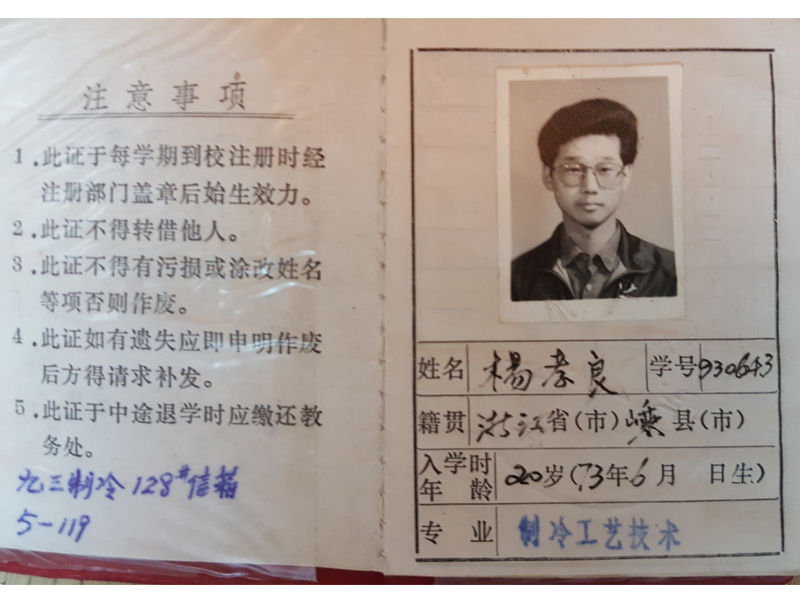 注意事项
1.此证于每学期到校注册时经
注册部门盖章后始生效力。
2.此证不得转借他人。
3.此证不得有污损或涂改姓名
等项否则作废。
4.此证如有遗失应即申明作废
后方得请求补发。
5.此证于中途退学时应缴还教
务处。
九三制冷128#信箱
5-119
姓名 楊孝良 学号 930643
籍贯 浙江省(市)嵊县(市)
入学时年龄 20岁(73年6月 日生)
专业 制冷工艺技术